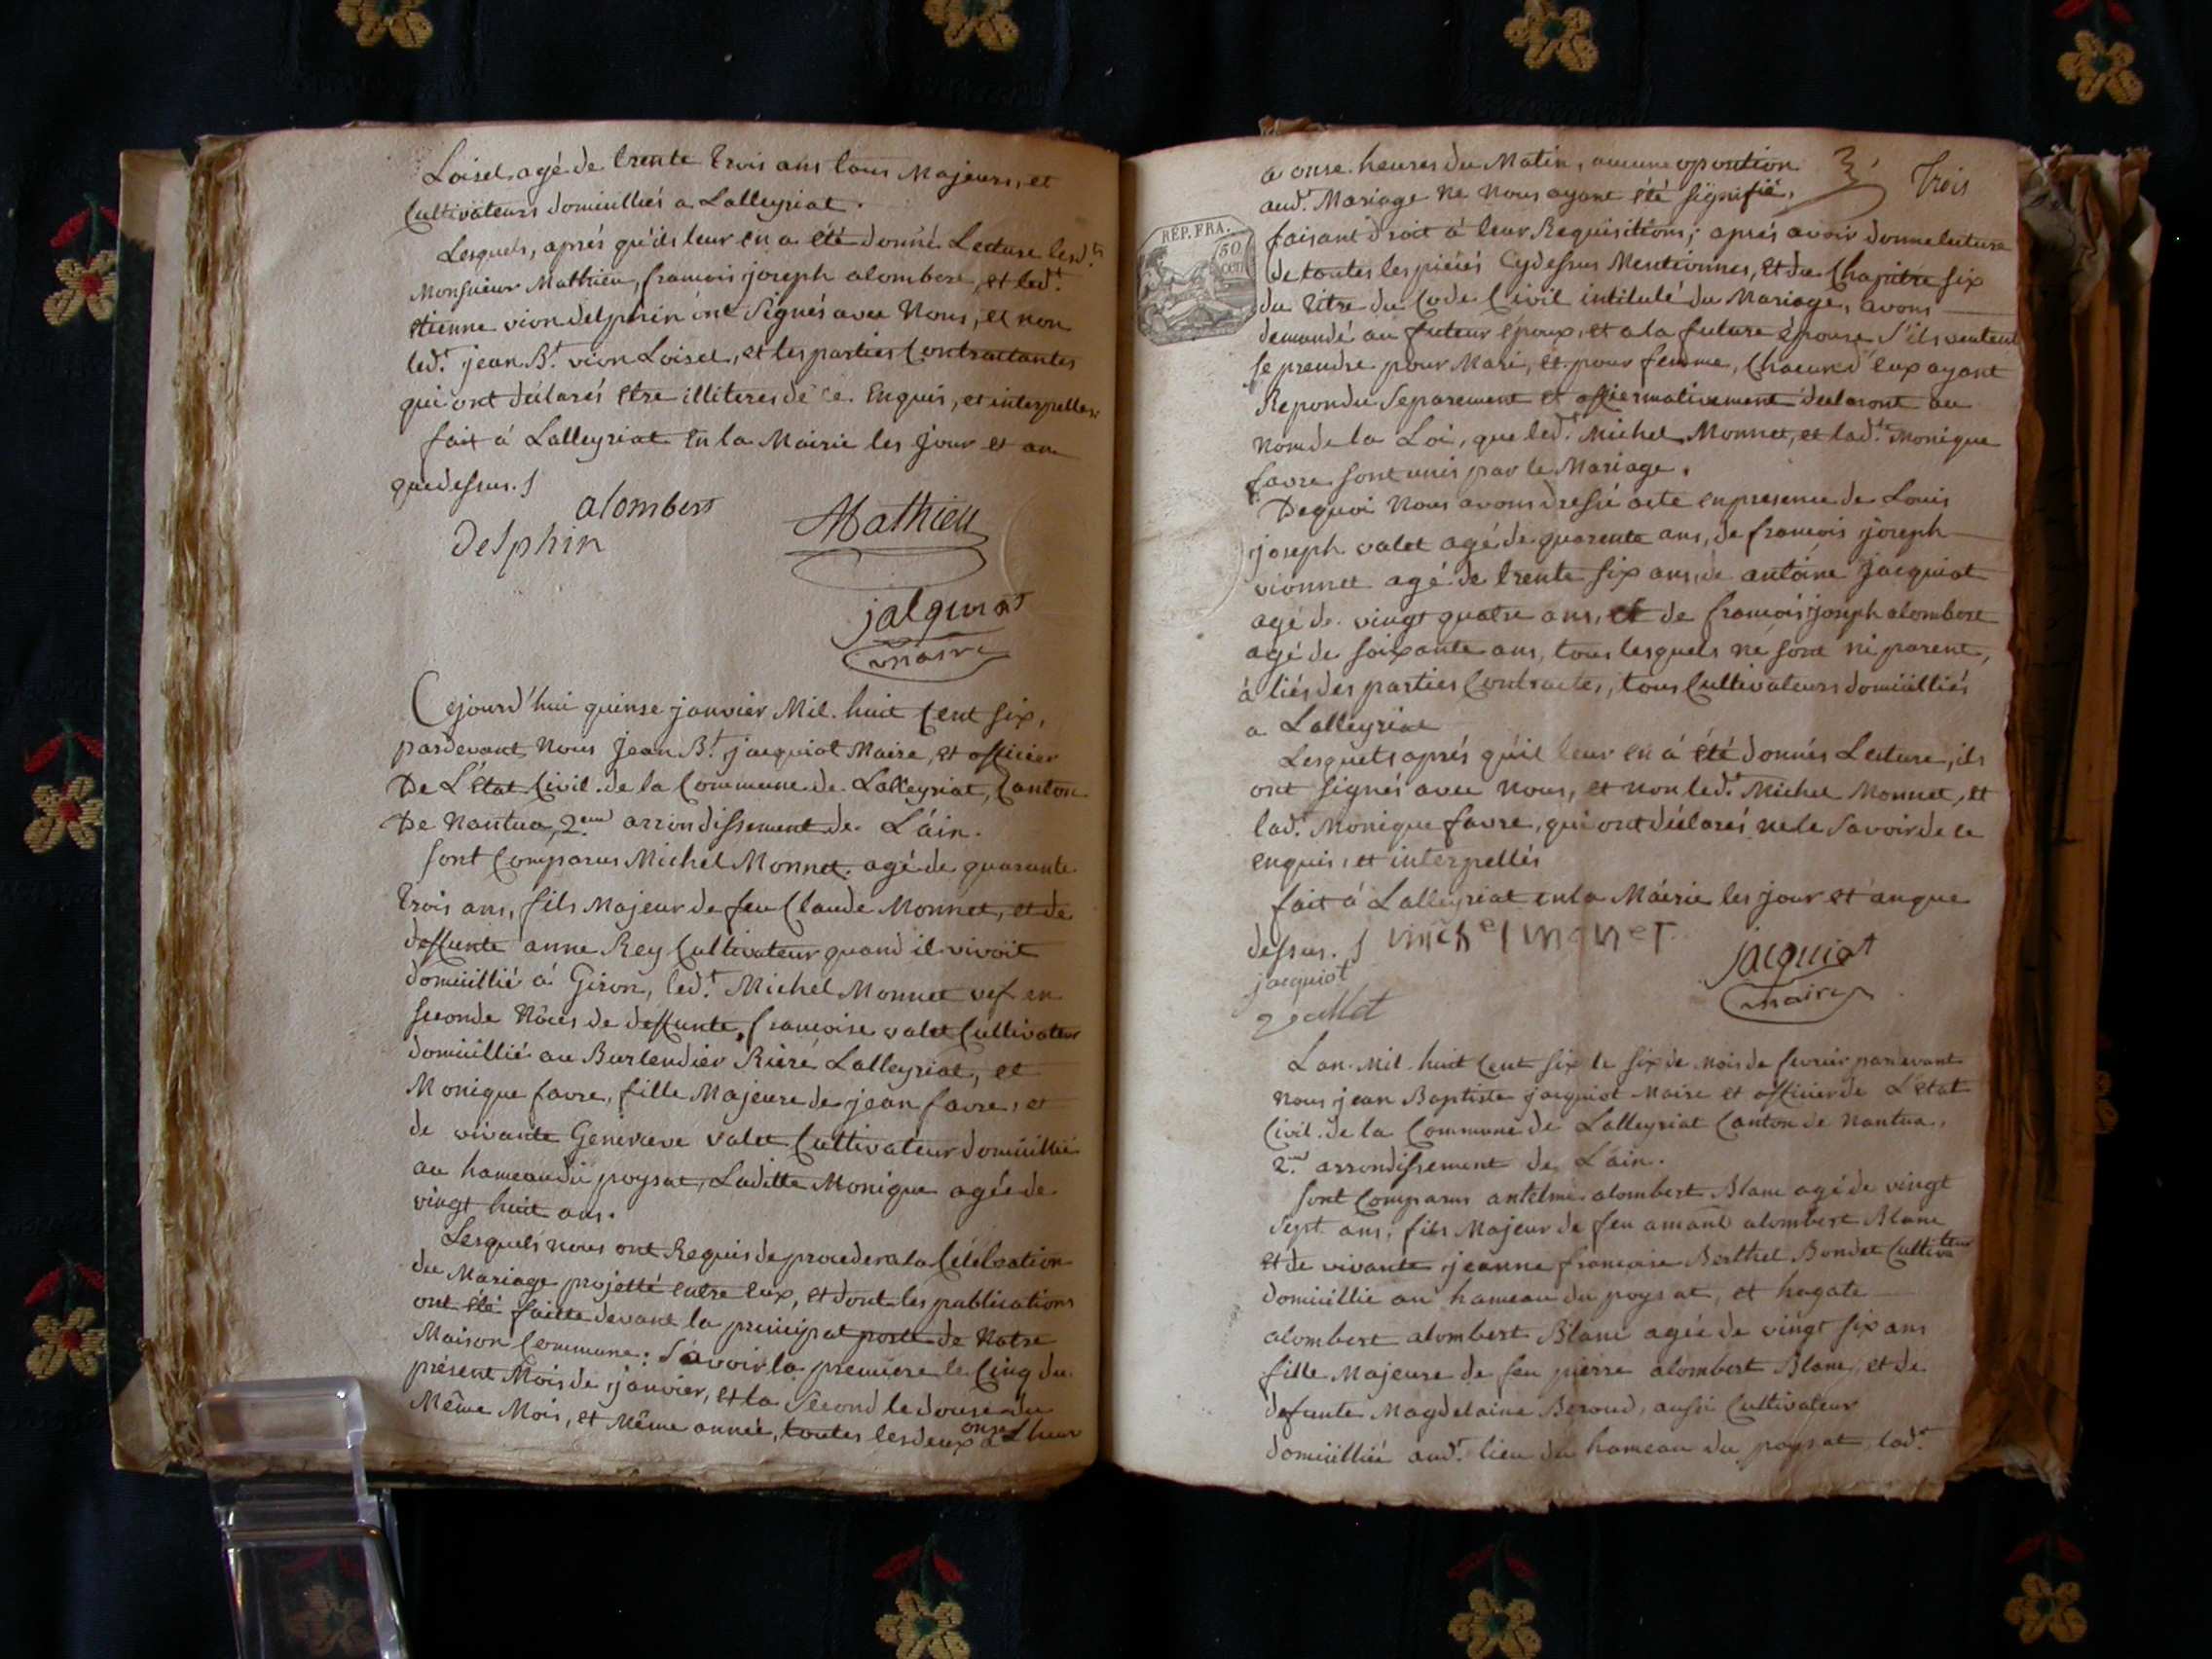 Loisel agé de trente trois ans tous Majeurs, et
Cultivateurs domiciliés a Lalleyriat.
Lesquels, aprés qu'ils leur en a été donné Lecture lesd.ts
Monsieur Mathieu, francois joseph alombert, et led.t
etienne vion delphin ont Signés avec Nous, et non
led.t jean B.t vion Loisel, et les parties Contractantes
qui ont déclarés etre illiteres de ce Enquis, et interpellés
fait á Lalleyriat en la Mairie les jour et an
que dessus. /
alombert
Delphin
Mathieu
jacquiot
maire
Cejourd'hui quinse janvier Mil huit Cent six,
pardevant Nous jean B.t jacquiot Maire, et officier
De L'état Civil de la Commune de Lalleyriat, Canton
De Nantua, 2.eme arrondissement de L'áin.
Sont Comparus Michel Monnet agé de quarante
trois ans, fils Majeur de feu Claude Monnet, et de
deffunte anne Rey Cultivateur quand il vivoit
domicillié á Giron, led.t Michel Monnet vef en
seconde Nôces de deffunte, francoise valet Cultivateur
domicillié au Burlendier Riére Lalleyriat, et
Monique favre, fille Majeure de jean favre, et
de vivante Genevieve valet Cultivateur domicillié
au hameau du poysat, Laditte Monique agée de
vingt huit ans.
Lesquels nous ont Requis de proceder a la Célébration
du Mariage projetté entre eux, et dont les publications
ont été faitte devant la principal porte de Notre
Maison Commune: Sávoir la premiere le Cinq du
présent Mois de janvier, et la Second le douse du
Même Mois, et Même année, toutes les deux a onse L'heur
a onse heures du Matin, aucune oposition
3 Trois
aud.t Mariage ne Nous ayant été signifié,
RÉP. FRA.
50
cen
faisant droit á leur Requisitions; aprés avoir donne lecture
de toutes les piéces Cy dessus Mentionnes, et du Chapitre six
du titre du Code Civil intitulé du Mariage, avons
demandé au futeur époux, et a la future épouse S'ils veulent
se prendre pour Mari, et pour femme, Chacun d'eux ayant
Repondu Separement et affiermativement déclaront au
Nom de la Loi, que led.t Michel Monnet, et lad.te Monique
favre sont unis par le Mariage.
De quoi Nous avons dressé acte en presence de Louis
joseph valet agé de quarente ans, de francois joseph
vionnet agé de trente six ans, de antoine jacquiot
agé de vingt quatre ans, et de francois joseph alombert
agé de soixante ans, tous lesquels ne sont ni parent,
á liés des parties Contracte, tous Cultivateurs domicilliés
a Lalleyriat
Lesquels aprés qu'il leur en á été donnés Lecture, ils
ont signés avec Nous, et non led.t Michel Monnet, et
lad.t Monique favre, qui ont déclarés ne le savoir de ce
enquis, et interpellés
fait á Lalleyriat en la Máirie les jour et an que
dessus. / michel monet
jacquiot
jacquiot
maire
vallet
Lan Mil huit Cent six le six de Mois de fevrier pardevant
nous jean Baptiste jacquiot Maire et officier de L'état
Civil de la Commune de Lalleyriat Canton de Nantua,
2.me arrondissement de L'áin.
sont Comparus antelme alombert Blanc agé de vingt
sept ans, fils Majeur de feu amant alombert Blanc
et de vivante jeanne francoise Berthet Bondet Cultivateur
domicillie au hameau du poysat, et hagate
alombert alombert Blanc agée de vingt six ans
fille Majeure de feu pierre alombert Blanc, et de
defunte Magdelaine Beroud, aussi Cultivateur
domicillié aud.t lieu du hameau du poysat lad.t